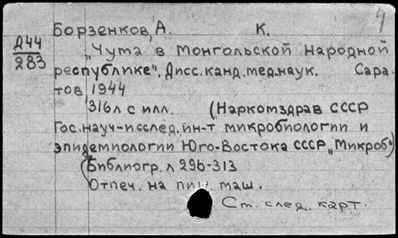 Борзенков, А. К.
Д44
283
„Чума в Монгольской Народной
республике“. Дисс. канд. мед. наук. Сара-
тов 1944
316 л с илл. (Наркомздрав СССР
Гос. науч-исслед. ин-т микробиологии и
эпидемиологии Юго-Востока СССР „Микроб“)
(Библиогр. л 296-313
Отпеч. на пиш маш.
См. след. карт.